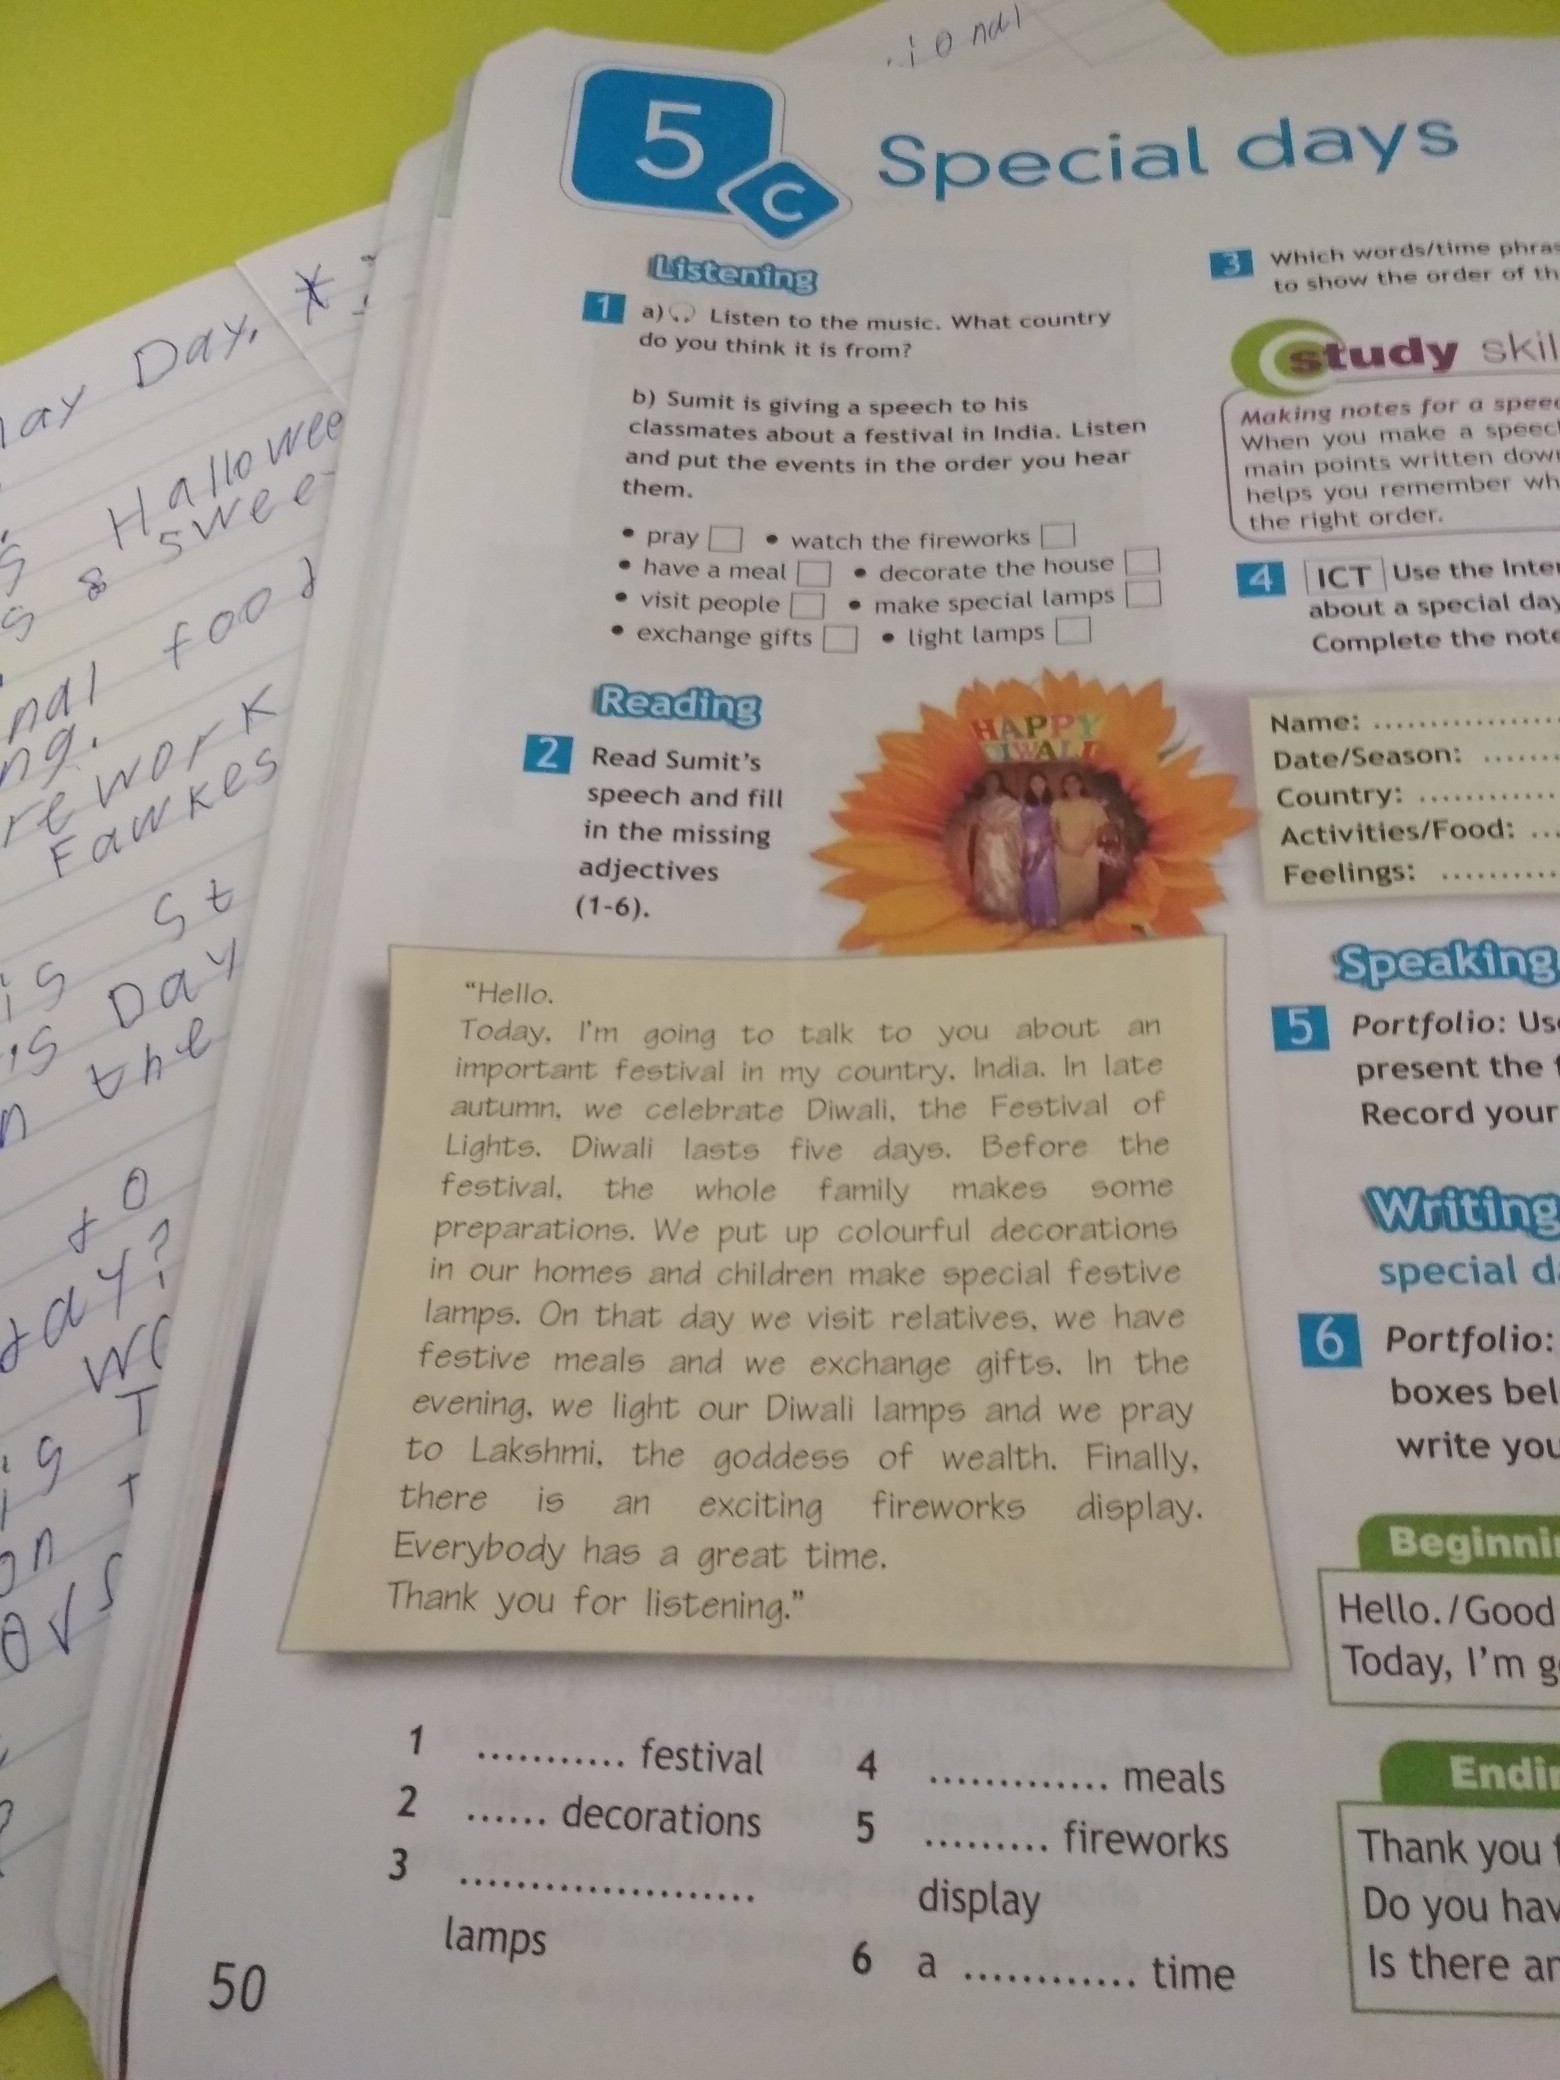 i o nal
5 c Special days
Listening
1 a) Listen to the music. What country
do you think it is from?
b) Sumit is giving a speech to his
classmates about a festival in India. Listen
and put the events in the order you hear
them.
• pray • watch the fireworks
• have a meal • decorate the house
• visit people • make special lamps
• exchange gifts • light lamps
Reading
2 Read Sumit's
speech and fill
in the missing
adjectives
(1-6).
HAPPY
DIWALI
"Hello.
Today, I'm going to talk to you about an
important festival in my country, India. In late
autumn, we celebrate Diwali, the Festival of
Lights. Diwali lasts five days. Before the
festival, the whole family makes some
preparations. We put up colourful decorations
in our homes and children make special festive
lamps. On that day we visit relatives, we have
festive meals and we exchange gifts. In the
evening, we light our Diwali lamps and we pray
to Lakshmi, the goddess of wealth. Finally,
there is an exciting fireworks display.
Everybody has a great time.
Thank you for listening."
1 ........... festival
2 ...... decorations
3 .....................
lamps
4 ............. meals
5 ......... fireworks
display
6 a ............ time
50
3 Which words/time phras
to show the order of th
study skil
Making notes for a speec
When you make a speech
main points written down
helps you remember wh
the right order.
4 ICT Use the Inter
about a special day
Complete the note
Name: ................
Date/Season: ......
Country: ............
Activities/Food: ...
Feelings: ..........
Speaking
5 Portfolio: Use
present the
Record your
Writing
special d
6 Portfolio:
boxes bel
write you
Beginni
Hello./Good
Today, I'm g
Endi
Thank you
Do you hav
Is there an
ay Day. *
Hallowee
s & swee
nal food
ng.
re work
Fawkes
is St
is Day
n the
to
day?
wo
is T
on t